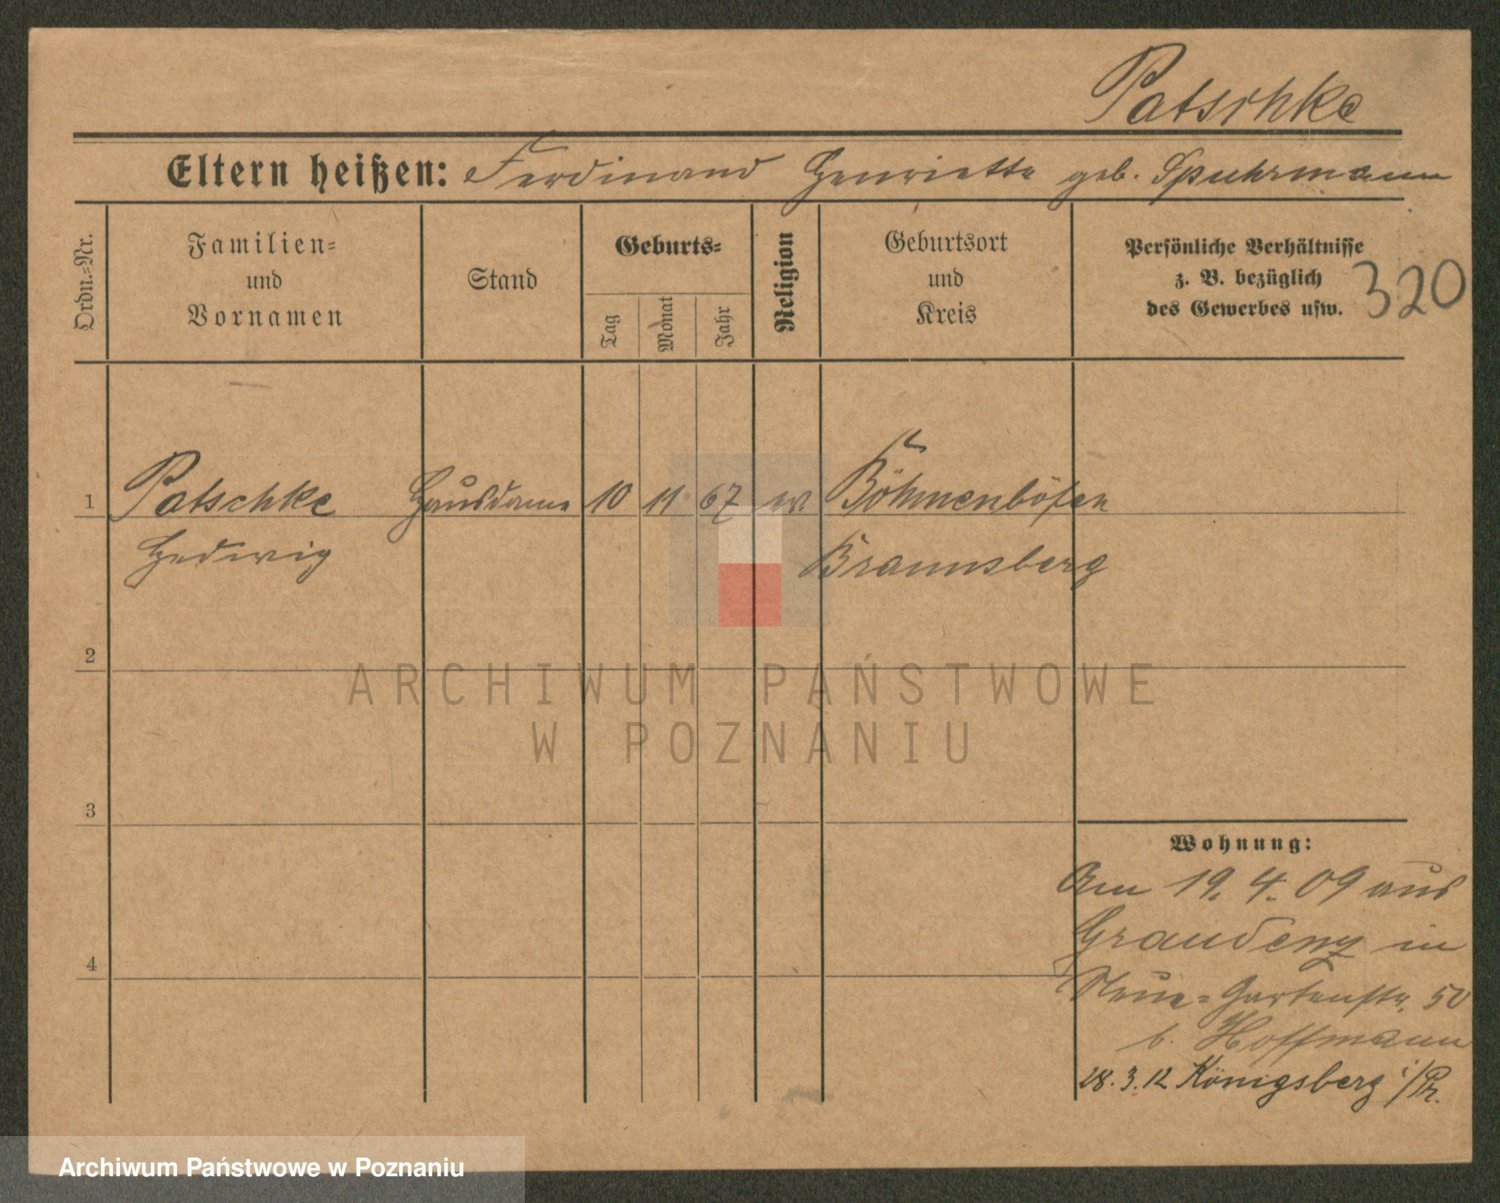 Patschke
Eltern heißen: Ferdinand Henriette geb. Spuhrmann
Ordn.-Nr.
Familien-
und
Vornamen
Stand
Geburts-
Tag
Monat
Jahr
Religion
Geburtsort
und
Kreis
Persönliche Verhältnisse
z. B. bezüglich
des Gewerbes usw.
320
1 Patschke Hausdame 10 11 67 ev Böhmenhöfen
Hedwig Braunsberg
2
3
4
Wohnung:
Am 19.4.09 aus
Graudenz in
Neue-Gartenstr. 50
b. Hoffmann
28.3.12 Königsberg i/Pr.
ARCHIWUM PAŃSTWOWE
W POZNANIU
Archiwum Państwowe w Poznaniu